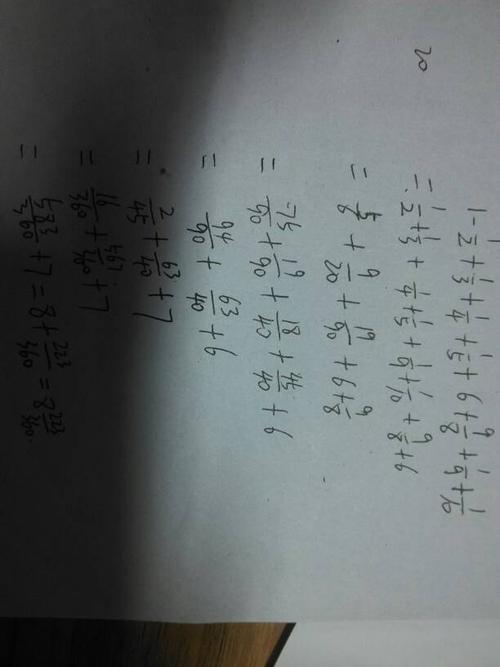 20
1-1/2+1/3+1/4+1/5+6+9/8+1/9+1/10
=1/2+1/3+1/4+1/5+1/9+1/10+9/8+6
=5/6+9/20+19/90+6+9/8
=75/90+19/90+18/40+45/40+6
=94/90+63/40+6
=2/45+63/40+7
=16/360+567/360+7
=583/360+7=8+223/360=8 223/360.